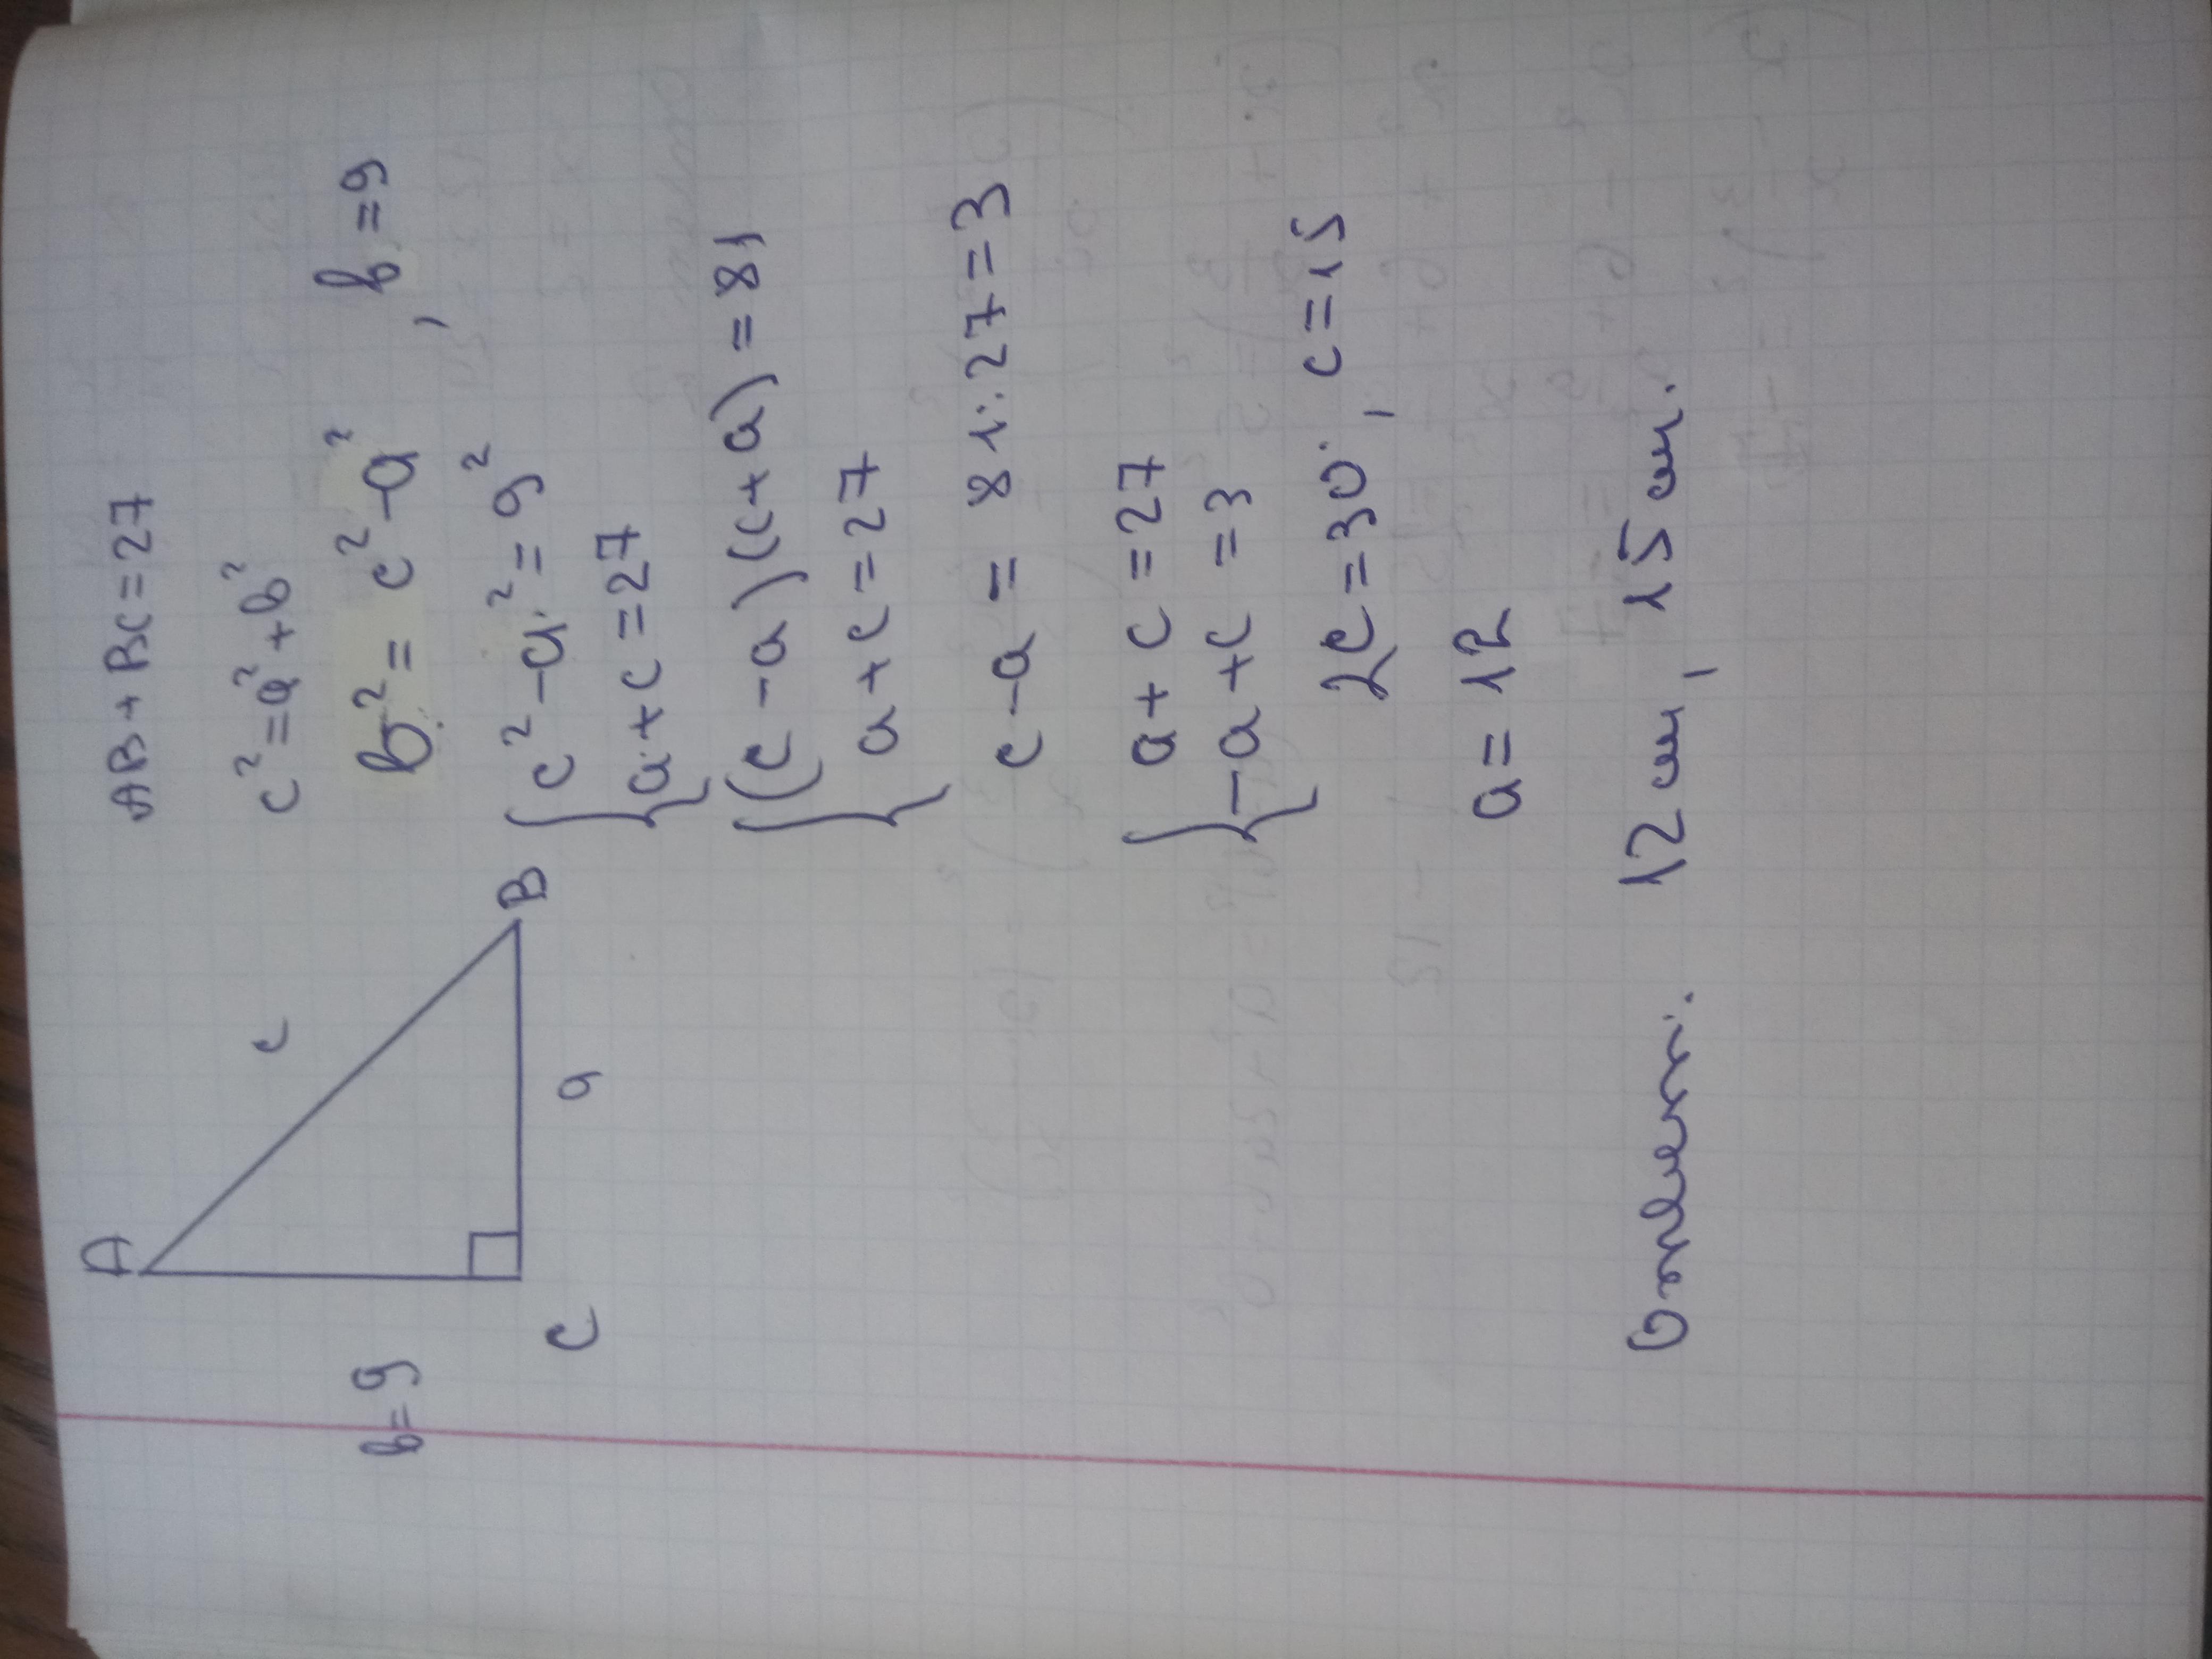 A
c
b=9
C
a
B
AB+BC=27
c²=a²+b²
b²=c²-a², b=9
{c²-a²=9²
a+c=27
{(c-a)(c+a)=81
a+c=27
c-a = 81:27=3
{a+c=27
-a+c=3
2c=30, c=15
a=12
Ответ. 12 см, 15 см.